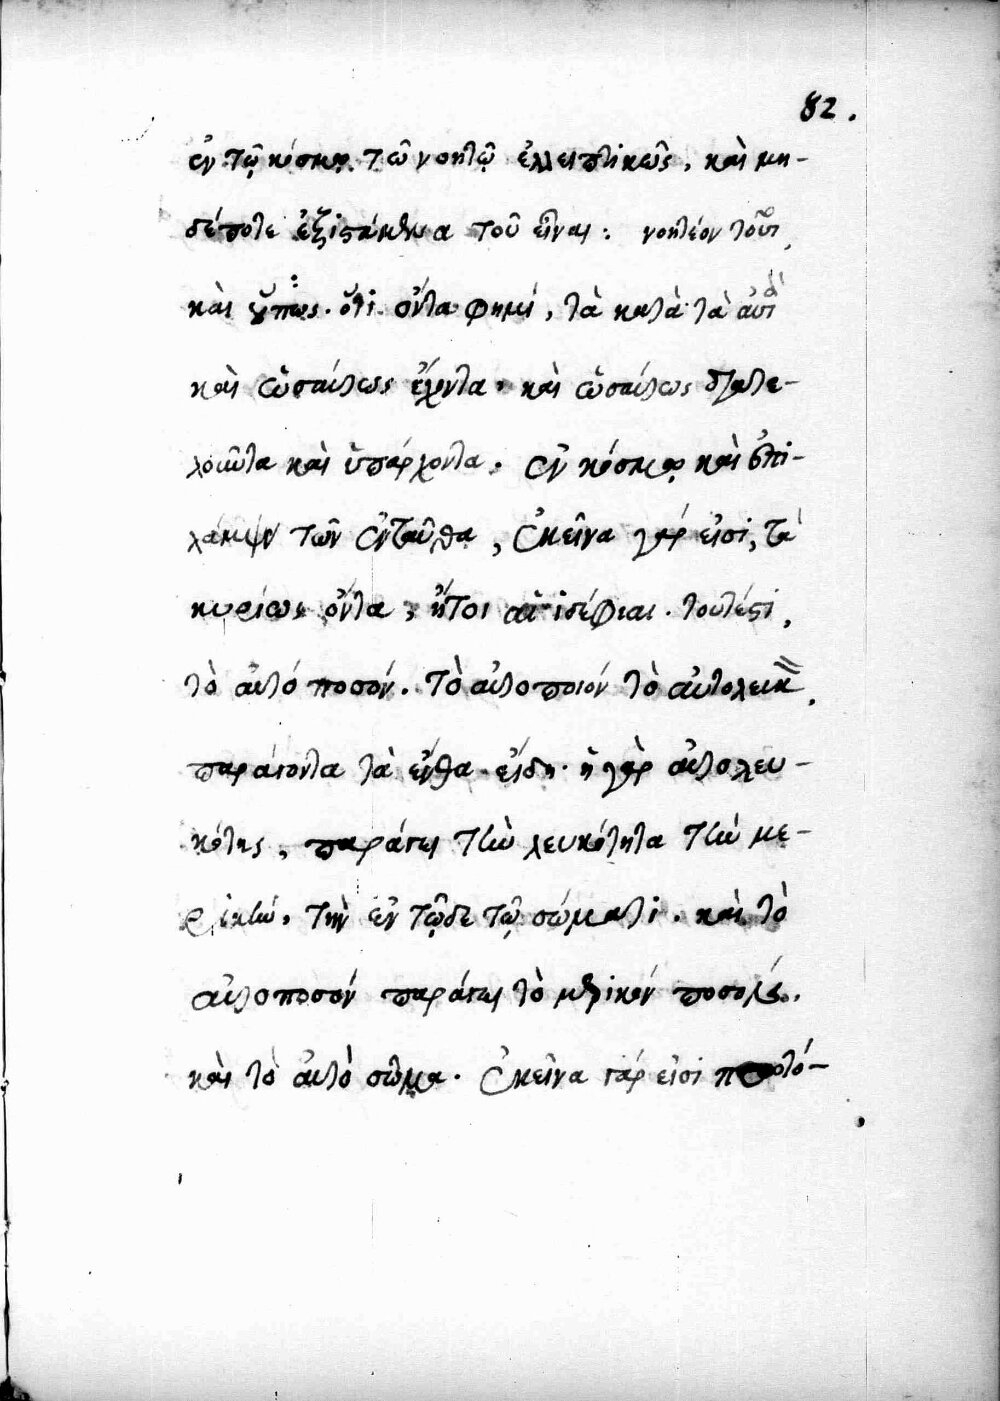 82.
ἐν τῷ κόσμῳ τῶ νοητῷ ἐλλειπτικῶς, καὶ μη-
δέποτε ἐξιστάμενα τοῦ εἶναι: νοητέον
καὶ οὕπως. ὅτι ὄντα φημί, τὰ κατὰ τὰ αὐτὰ
καὶ ὡσαύτως ἔχοντα. καὶ ὡσαύτως διατε-
λοῦντα καὶ ὑπάρχοντα. ἐν κόσμῳ καὶ ἐπι-
λάμψιν τῶν ἐνταῦθα, ἐκεῖνα γάρ εἰσι, τὰ
κυρίως ὄντα, ἤτοι αἱ ἰδέαι. τουτέστι,
τὸ αὐτό ποσόν. Τὸ αὐτοποιόν τὸ
παράγοντα τὰ ἔνθα εἴδη. ἡ γὰρ αὐτολευ-
κότης, παράγει τὴν λευκότητα τὴν με-
ρικήν, τὴν ἐν τῷδε τῷ σώματι. καὶ τὸ
αὐτοποσόν παράγει τὸ μερικόν
καὶ τὸ αὐτὸ σῶμα. ἐκεῖνα γάρ εἰσι